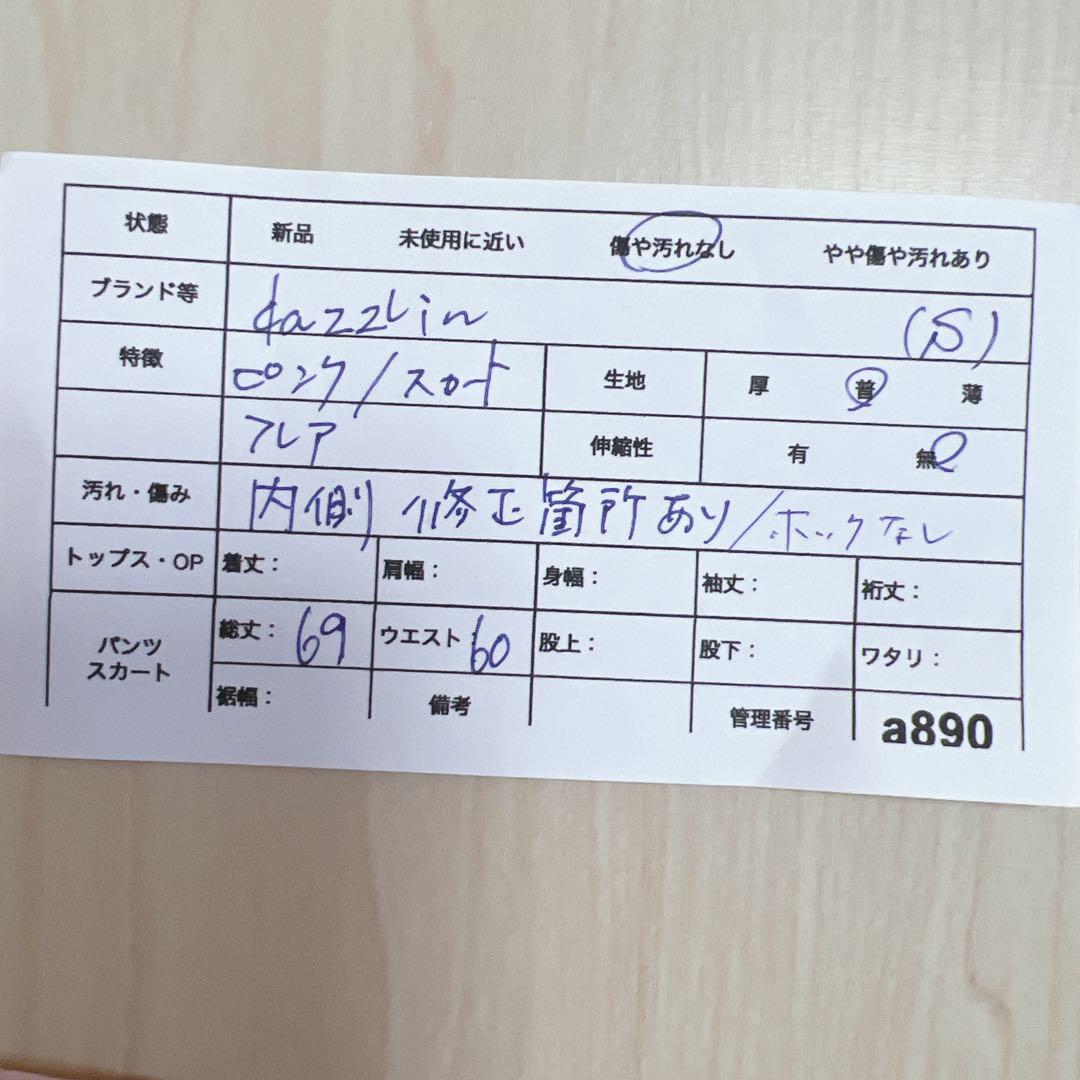 状態 新品 未使用に近い 傷や汚れなし やや傷や汚れあり
ブランド等 dazzlin (S)
特徴 ピンク/スカート 生地 厚 普 薄
フレア 伸縮性 有 無
汚れ・傷み 内側 修正箇所あり/ホックなし
トップス・OP 着丈: 肩幅: 身幅: 袖丈: 裄丈:
パンツ スカート 総丈: 69 ウエスト 60 股上: 股下: ワタリ:
裾幅: 備考 管理番号 a890